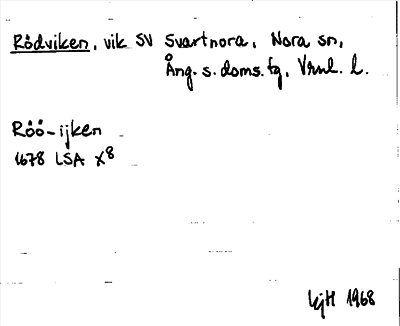 Rödviken, vik SV Svartnora, Nora sn,
Ång. s. doms. fg, Vrnl. l.
Röö-ijken
1678 LSA X8
LjH 1968